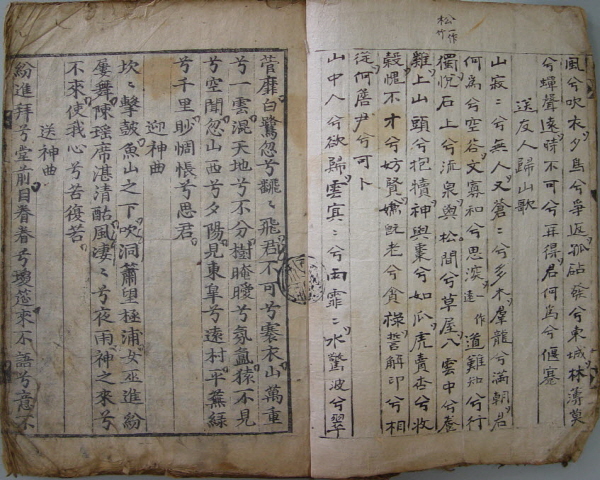 松一作竹
風兮吹衣夕鳥兮爭返孤砧發兮東城林薄莫
兮蟬聲遠時不可兮再得君何爲兮偃蹇
送友人歸山歌
山寂〻兮無人又蒼〻兮多木羣龍兮滿朝君
何爲兮空谷文寡和兮思深一作逵道難知兮行
獨悅石上兮流泉與松間兮草屋入雲中兮養
雞上山頭兮抱犢神與棗兮如瓜虎賣杏兮收
穀愧不才兮妨賢嫌既老兮貪祿誓解印兮相
從何詹尹兮可卜
山中人兮欲歸雲冥〻兮雨霏〻水驚波兮翠
菅靡白鷺忽兮飜〻飛君不可兮褰衣山萬重
兮一雲混天地兮不分樹晻曖兮氛氳猿不見
兮空聞忽山西兮夕陽見東皐兮遠村平蕪綠
兮千里眇惆悵兮思君
迎神曲
坎〻擊鼓魚山之下吹洞簫望極浦女巫進紛
屢舞陳瑤席湛清酤風凄〻兮夜雨神之來兮
不來使我心兮苦復苦
送神曲
紛進拜兮堂前目眷眷兮瓊筵來不語兮意不